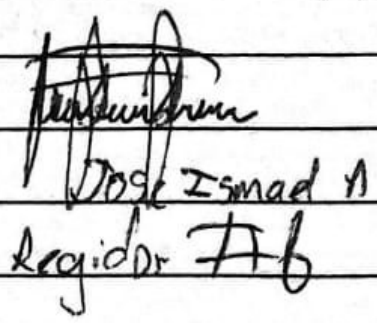 Jose Ismael A
Regidor #6